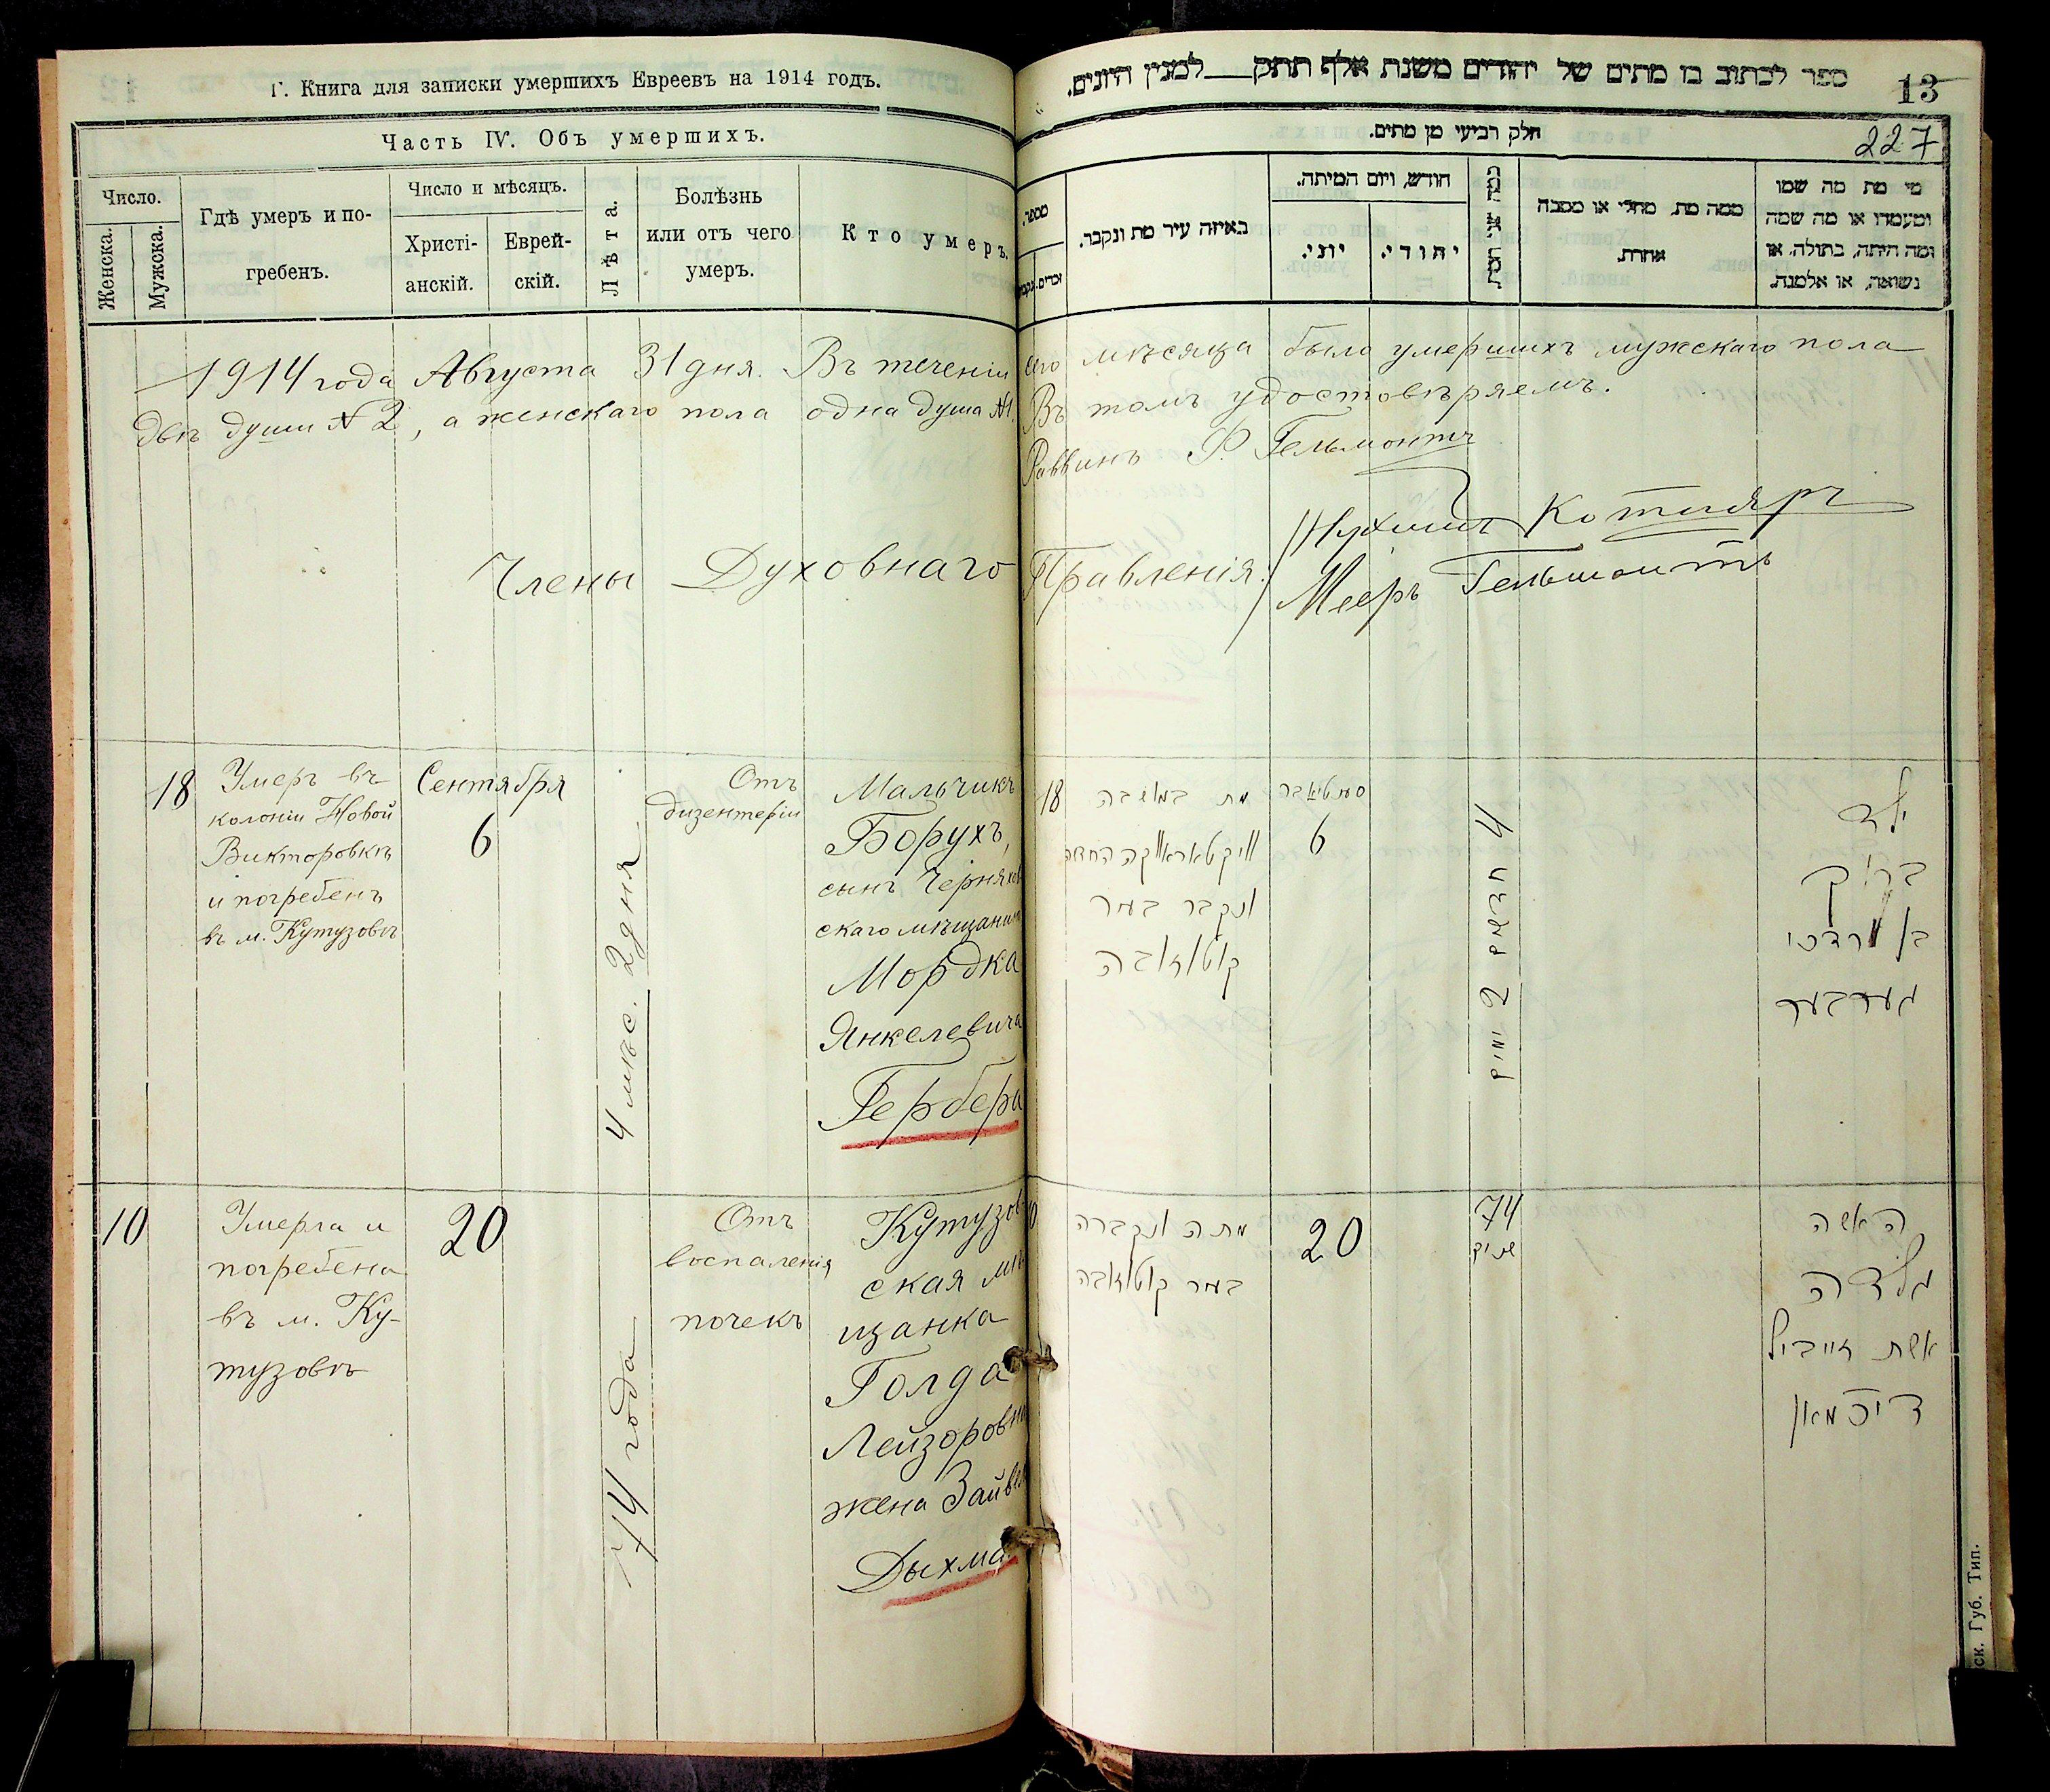 Г. Книга для записки умершихъ Евреевъ на 1914 годъ.
Часть IV. Объ умершихъ.
Число.
Женска.
Мужска.
Гдѣ умеръ и по-
гребенъ.
Число и мѣсяцъ.
Христі-
анскій.
Еврей-
скій.
Лѣта.
Болѣзнь
или отъ чего
умеръ.
Кто умеръ.
ספר לכתוב בו מתים של יהודים משנת אלף תתק למנין היונים.
13
חלק רביעי מן מתים.
227
מספר.
זכרים.
באיזה עיר מת ונקבר.
חודש, ויום המיתה.
יוני.
יהודי.
ממה מת, מחלי או מסבה
אחרת.
מי מת מה שמו
ומעמדו או מה שמה
ומה היתה, בתולה, או
נשואה, או אלמנה.
1914 года Августа 31 дня. Въ теченіи сего мѣсяца было умершихъ мужскаго пола
двѣ души № 2, а женскаго пола одна душа №1. Въ томъ удостовѣряемъ.
Раввинъ Ф. Гельмонтъ
Члены Духовнаго Правленія:
Котляръ
Мееръ Гельмонтъ
18
Умеръ въ
колоніи Новой
Викторовкѣ
и погребенъ
въ м. Кутузовѣ
Сентября
6
4 мѣс. 2 дня
Отъ
дизентеріи
Мальчикъ
Борухъ,
сынъ Черняхов
скаго мѣщанина
Мордка
Янкелевича
Гербера
18
מת במושבה
וויקטאראווקה החדשה
ונקבר בעיר
קוטוזאבה
סענטיאבר
6
4 חדשים 2 ימים
ילד
ברוך
בן מרדכי
גערבער
10
Умерла и
погребена
въ м. Ку-
тузовѣ
20
74 года
Отъ
воспаленія
почекъ
Кутузов
ская мѣ
щанка
Голда
Лейзоровна
жена Зайвеля
Дыхма
10
מתה ונקברה
בעיר קוטוזאבה
20
74
שנים
האשה
גולדה
אשת זייביל
דיכמאן
ск. Губ. Тип.